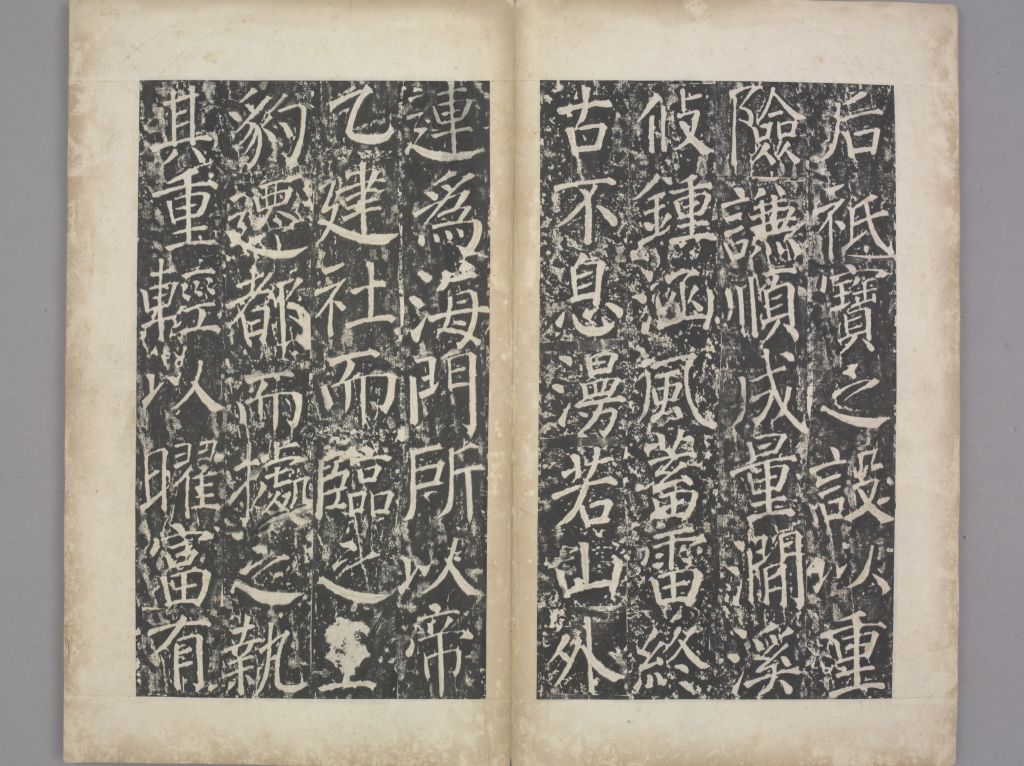 后祇寶之設以重
險謙順成量澗溪
攸鍾涵風蓄雷終
古不息漫若山外
連為海門所以帝
乙建社而臨之
豹遷都而據之執
其重輕以曜富有